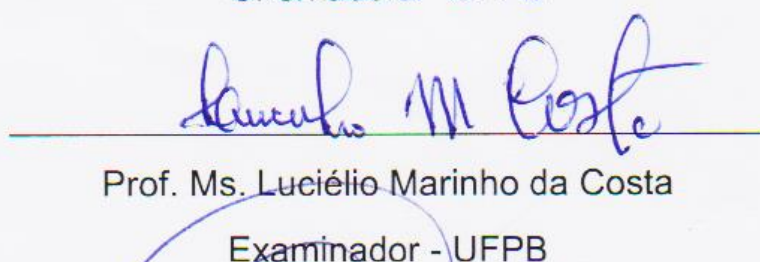 M Costa
Prof. Ms. Luciélio Marinho da Costa
Examinador - UFPB